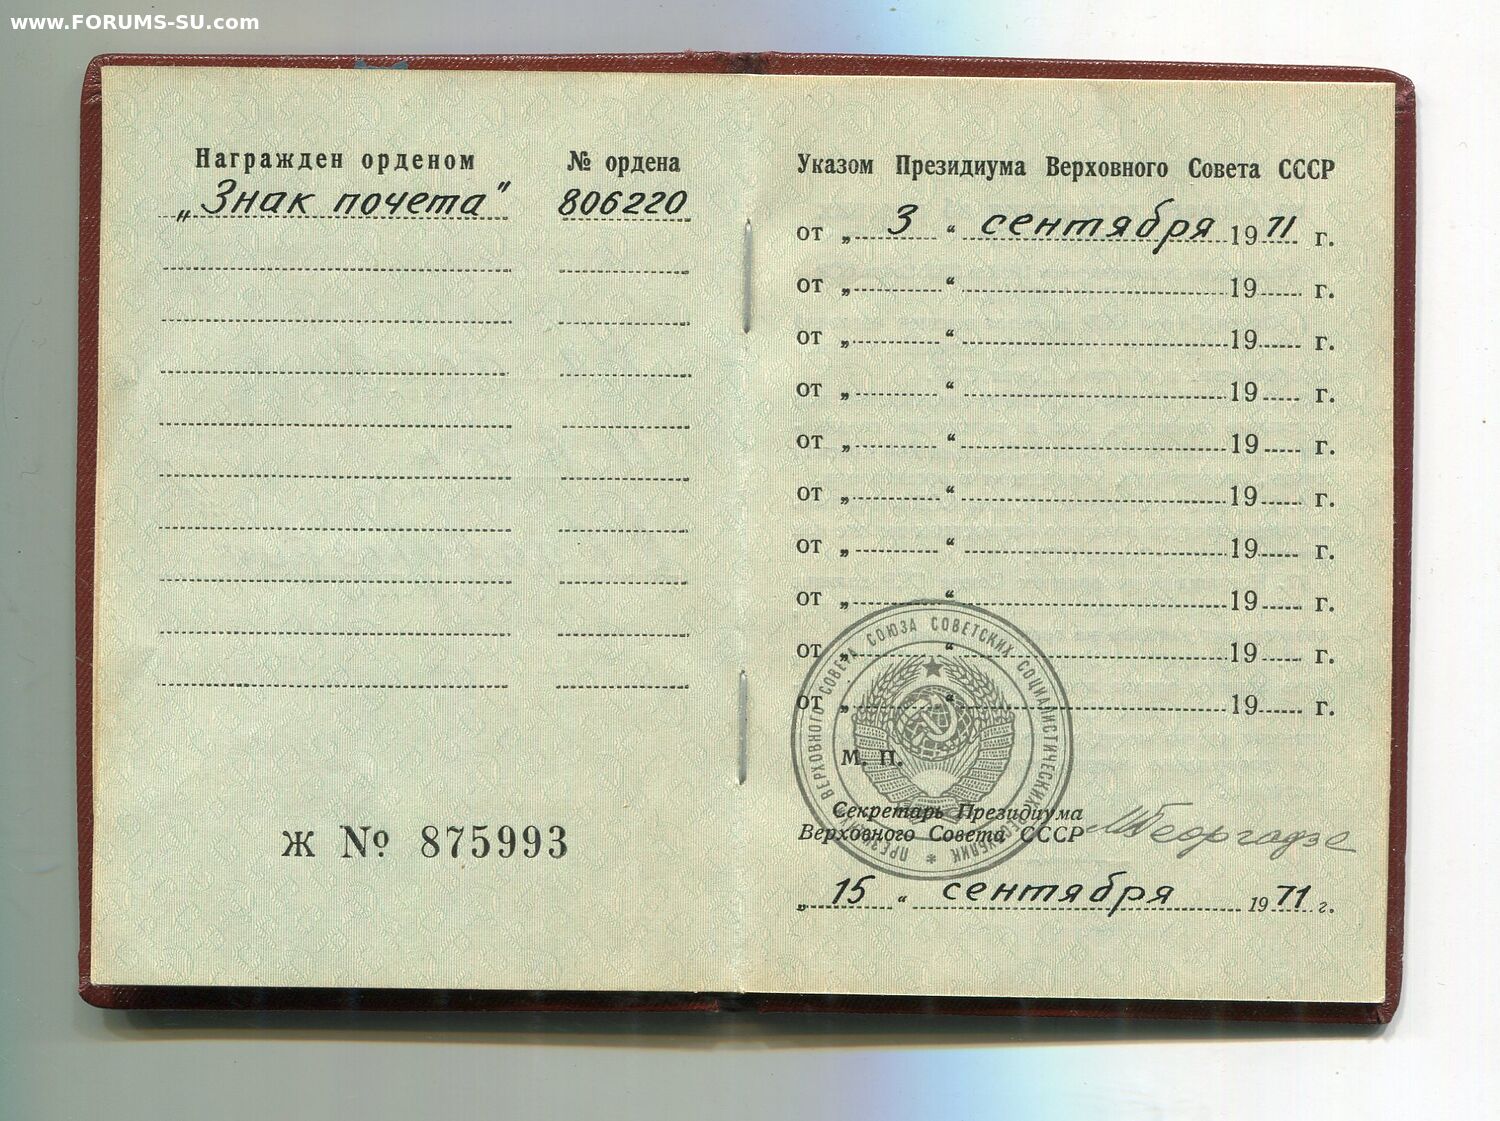 www.FORUMS-SU.com
Награжден орденом № ордена
„Знак почета" 806220
Ж № 875993
Указом Президиума Верховного Совета СССР
от „ 3 “ сентября 1971 г.
от „ “ 19 г.
от „ “ 19 г.
от „ “ 19 г.
от „ “ 19 г.
от „ “ 19 г.
от „ “ 19 г.
от „ “ 19 г.
от „ “ 19 г.
от „ “ 19 г.
ПРЕЗИДИУМ ВЕРХОВНОГО СОВЕТА СОЮЗА СОВЕТСКИХ СОЦИАЛИСТИЧЕСКИХ РЕСПУБЛИК *
М. П.
Секретарь Президиума
Верховного Совета СССР МГеоргадзе
„ 15 “ сентября 1971 г.